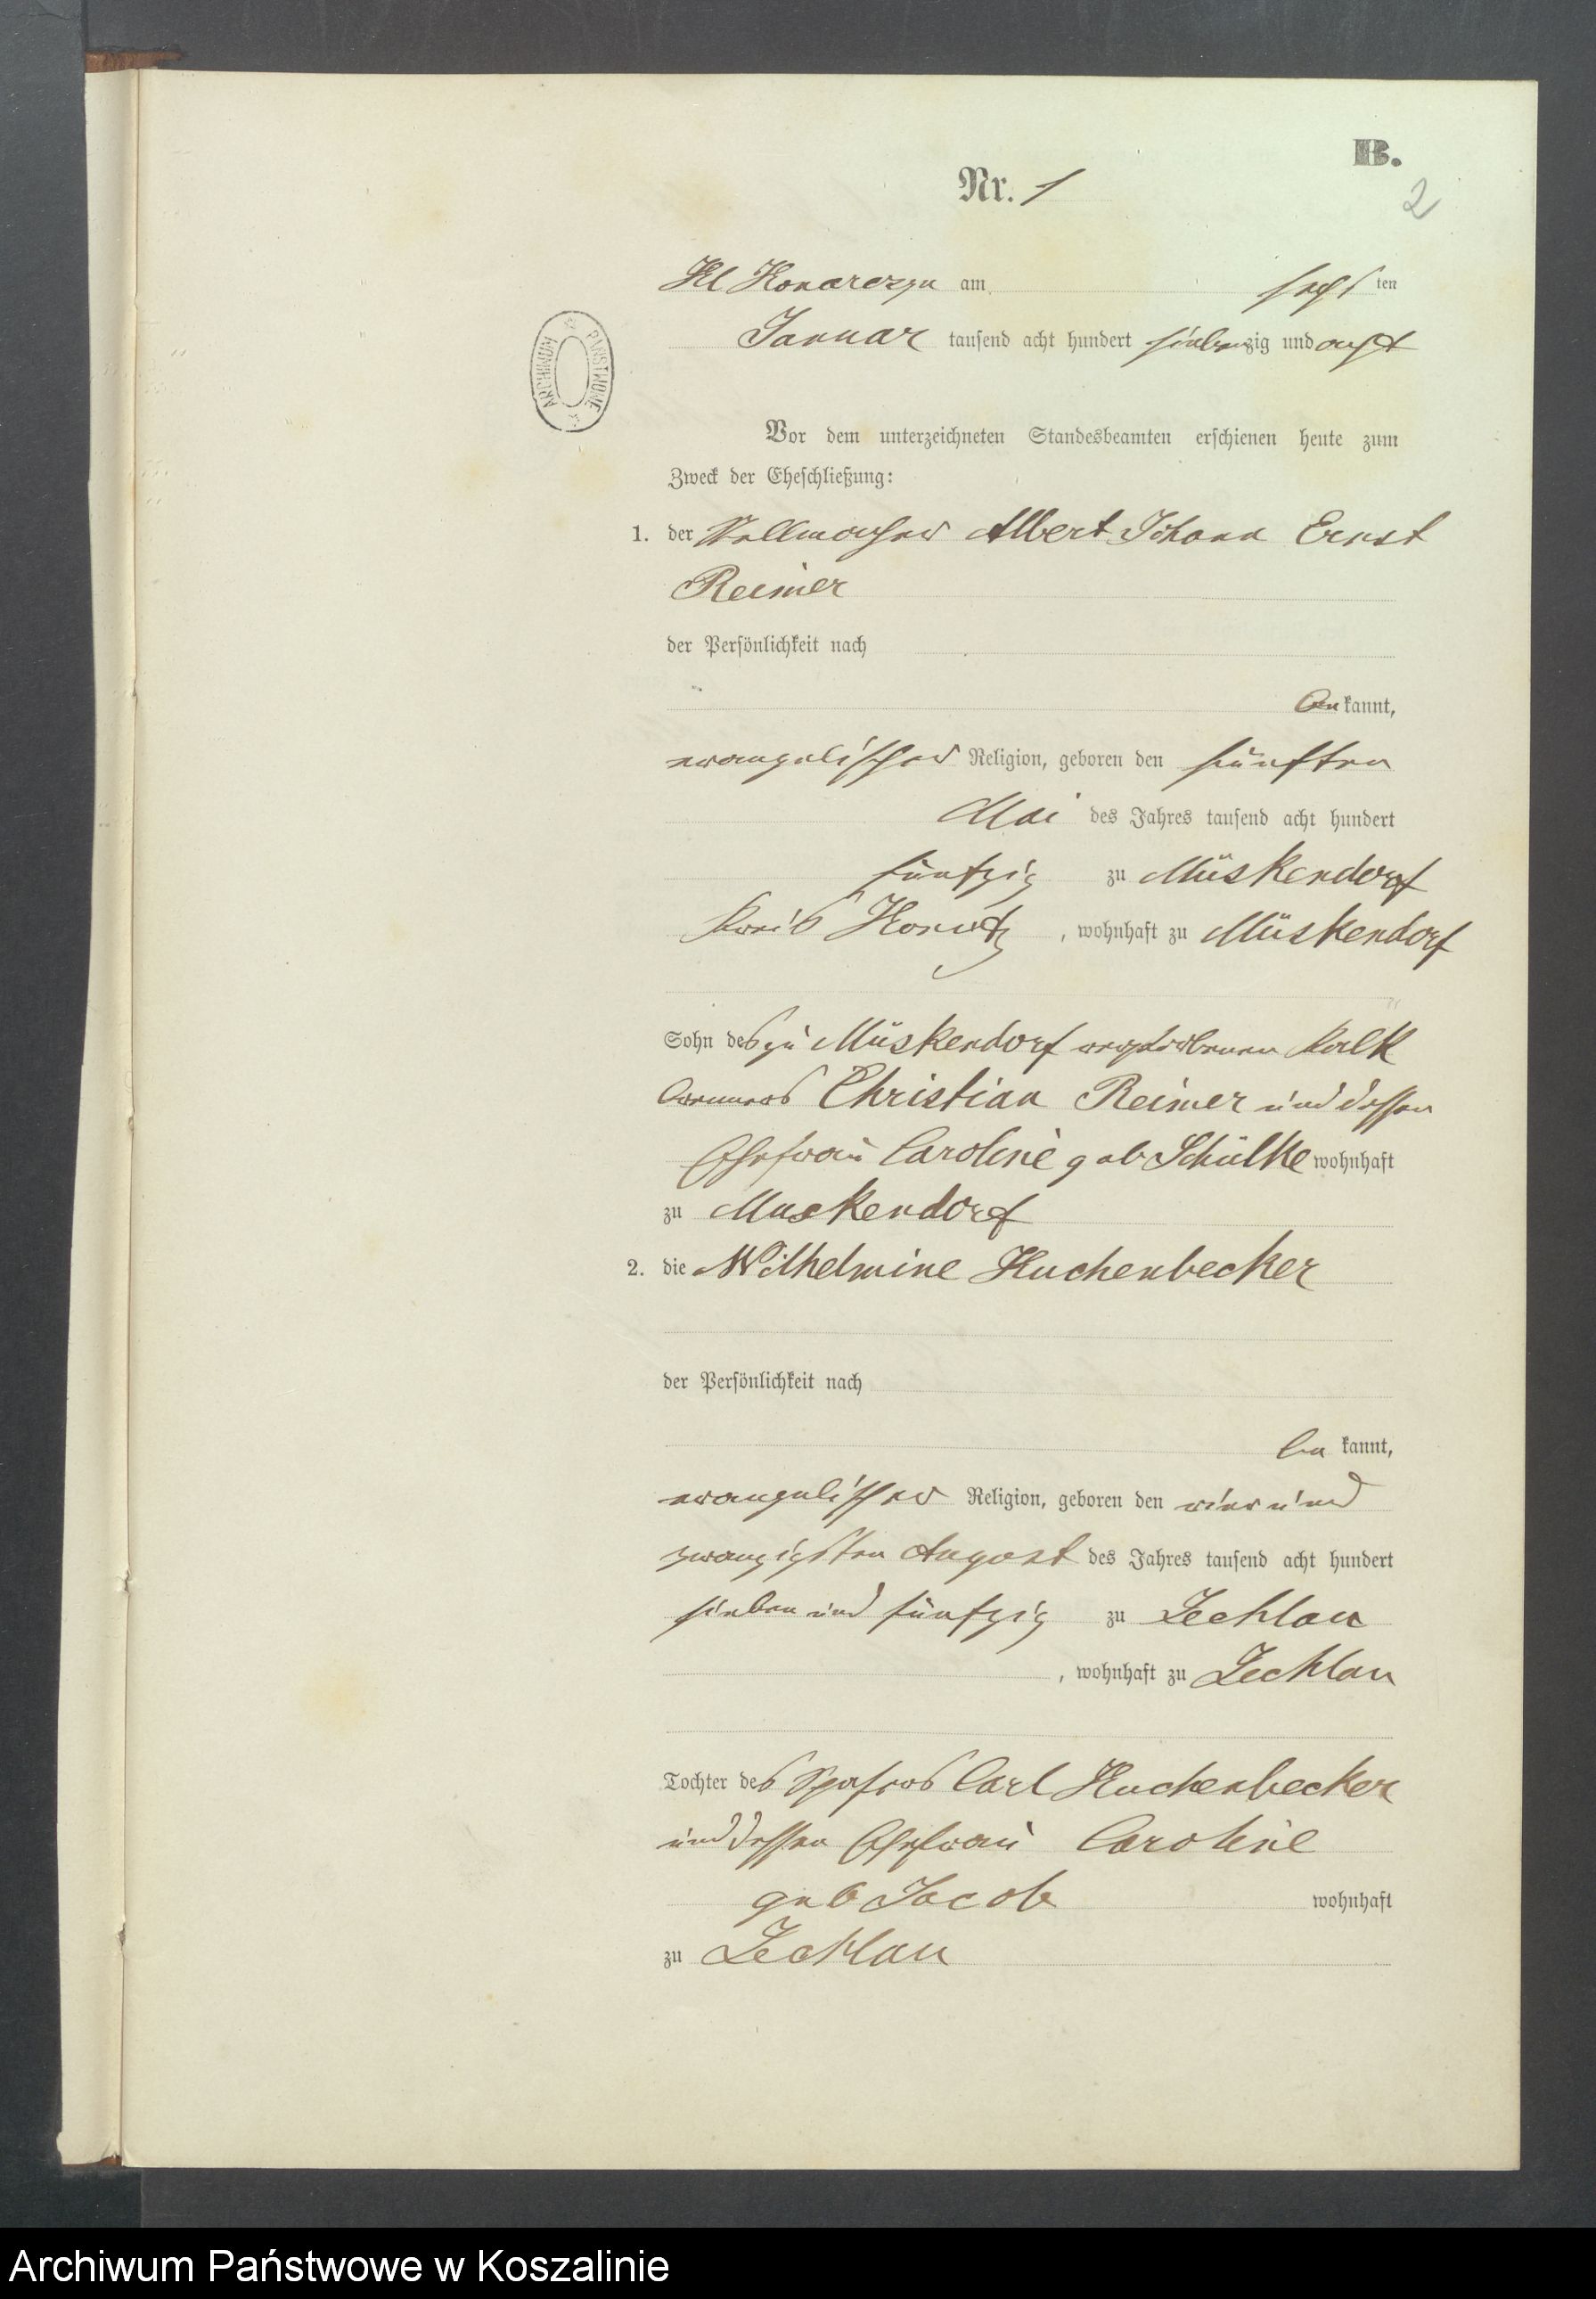 B.
Nr. 1
2
Kl Konarczyn am sechs ten
Januar tausend acht hundert siebenzig und acht
ARCHIWUM PAŃSTWOWE
Vor dem unterzeichneten Standesbeamten erschienen heute zum
Zweck der Eheschließung:
1. der Stellmacher Albert Johann Ernst
Reimer
der Persönlichkeit nach
be kannt,
evangelischer Religion, geboren den fünften
Mai des Jahres tausend acht hundert
fünfzig zu Müskendorf
Kreis Konitz, wohnhaft zu Müskendorf
Sohn des zu Müskendorf verstorbenen Kalk
brenners Christian Reimer und dessen
Ehefrau Caroline geb Schülke wohnhaft
zu Muskendorf
2. die Wilhelmine Kuchenbecker
der Persönlichkeit nach
be kannt,
evangelischer Religion, geboren den vier und
zwanzigsten August des Jahres tausend acht hundert
sieben und fünfzig zu Zechlau
, wohnhaft zu Zechlau
Tochter des Carl Kuchenbecker
und dessen Ehefrau Caroline
geb Jacob wohnhaft
zu Zechlau
Archiwum Państwowe w Koszalinie